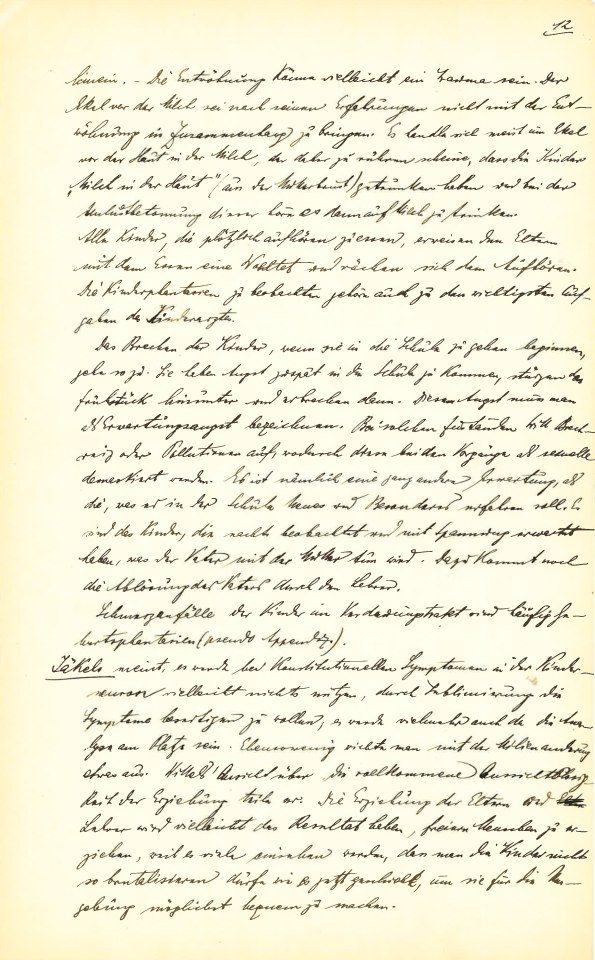 12
können. – Die Entwöhnung könne vielleicht ein Trauma sein. Der
Ekel vor der Milch sei nach seinen Erfahrungen nicht mit der Ent-
wöhnung in Zusammenhang zu bringen. Es handle sich meist um Ekel
vor der Haut in der Milch, der daher zu rühren scheine, dass die Kinder
"Milch in der Haut" (aus der Mutterbrust) getrunken haben und bei der
Unlustbetonung dieser hören es dann auf Milch zu trinken.
Alle Kinder, die plötzlich aufhören zu essen, erweisen den Eltern
mit dem Essen eine Wohltat und rächen sich dem Aufhören.
Die Kinderphantasien zu beobachten gehöre auch zu den wichtigsten Auf-
gaben des Kinderarztes.
Das Brechen der Kinder, wenn sie in die Schule zu gehen beginnen,
gehe so zu: Sie haben Angst zu spät in die Schule zu kommen, stürzen das
Frühstück hinunter und erbrechen dann. Diese Angst muss man
als Erwartungsangst bezeichnen. Bei solchen Zuständen tritt Brech-
reiz oder Pollutionen auf, wodurch diese beiden Vorgänge als sexuelle
demaskiert werden. Es ist nämlich eine ganz andere Erwartung, als
die, was er in der Schule Neues und Besonderes erfahren soll. Es
sind das Kinder, die nachts beobachtet und mit Spannung erwartet
haben, was der Vater mit der Mutter tun wird. Dazu kommt noch
die Ablösung des Vaters durch den Lehrer.
Schmerzanfälle der Kinder im Verdauungstrakt sind häufig Ge-
burtsphantasien (pseudo Appendix).
Jäkels meint, es werde bei konstitutionellen Symptomen in der Kinder-
neurose vielleicht nichts nützen, durch Sublimierung die
Symptome beseitigen zu wollen, es werde vielmehr auch da die Ana-
lyse am Platze sein. Ebensowenig richte man mit der Milieuänderung
etwas aus. Wittels' Ansicht über die vollkommene Aussichtslosig-
keit der Erziehung teile er. Die Erziehung der Eltern und
Lehrer wird vielleicht das Resultat haben, freiere Menschen zu er-
ziehen, weil es viele einsehen werden, dass man die Kinder nicht
so brutalisieren dürfe wie es jetzt geschieht, um sie für die Um-
gebung möglichst bequem zu machen.